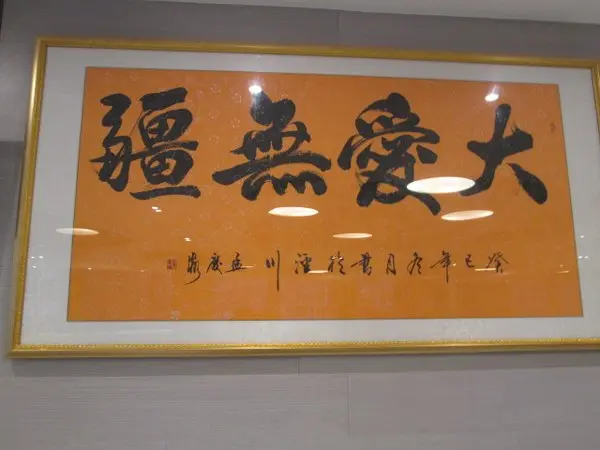 大愛無疆
癸巳年冬月書於川孟慶